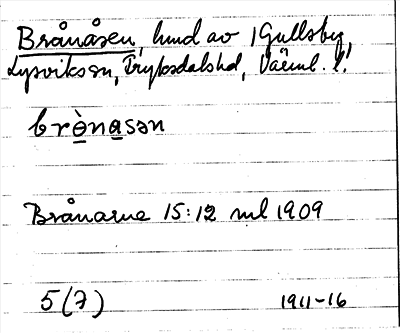 Brånåsen, hmd av Gullsby,
Lysviks sn, Fryksdals hd, Värml. l.
brònasən
Brånarna 15:12 mb 1909
5(7) 1911-16